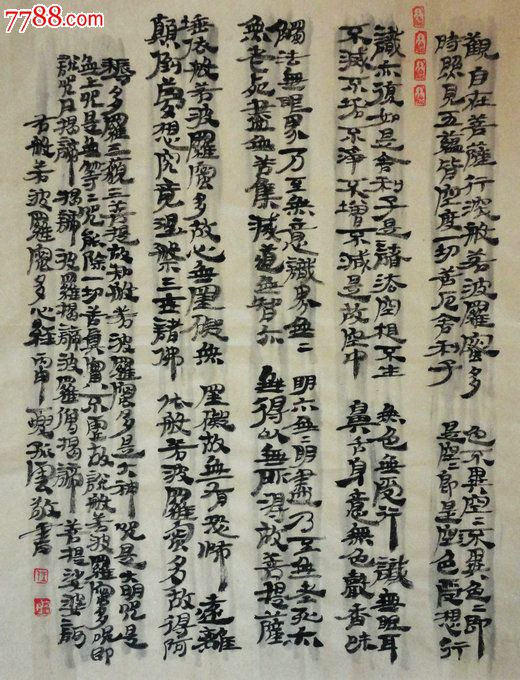 7788.com
觀自在菩薩行深般若波羅蜜多
時照見五蘊皆空度一切苦厄舍利子
色不異空二不異色二即
是空二即是空色受想行
識亦復如是舍利子是諸法空相不生
不滅不垢不淨不增不減是故空中
無色無受行識無眼耳
鼻舌身意無色聲香味
觸法無眼界乃至無意識界無二
明亦無二明盡乃至無老死亦
無老死盡無苦集滅道無智亦
無得以無所得故菩提薩
埵依般若波羅蜜多故心無罣礙無
罣礙故無有恐怖遠離
顛倒夢想究竟涅槃三世諸佛
依般若波羅蜜多故得阿
耨多羅三藐三菩提故知般若波羅蜜多是大神咒是大明咒是
無上咒是無等二咒能除一切苦真實不虛故說般若波羅蜜多咒即
說咒曰揭諦揭諦波羅揭諦波羅僧揭諦菩提娑婆訶
右般若波羅蜜多心經丙申孤雲敬書